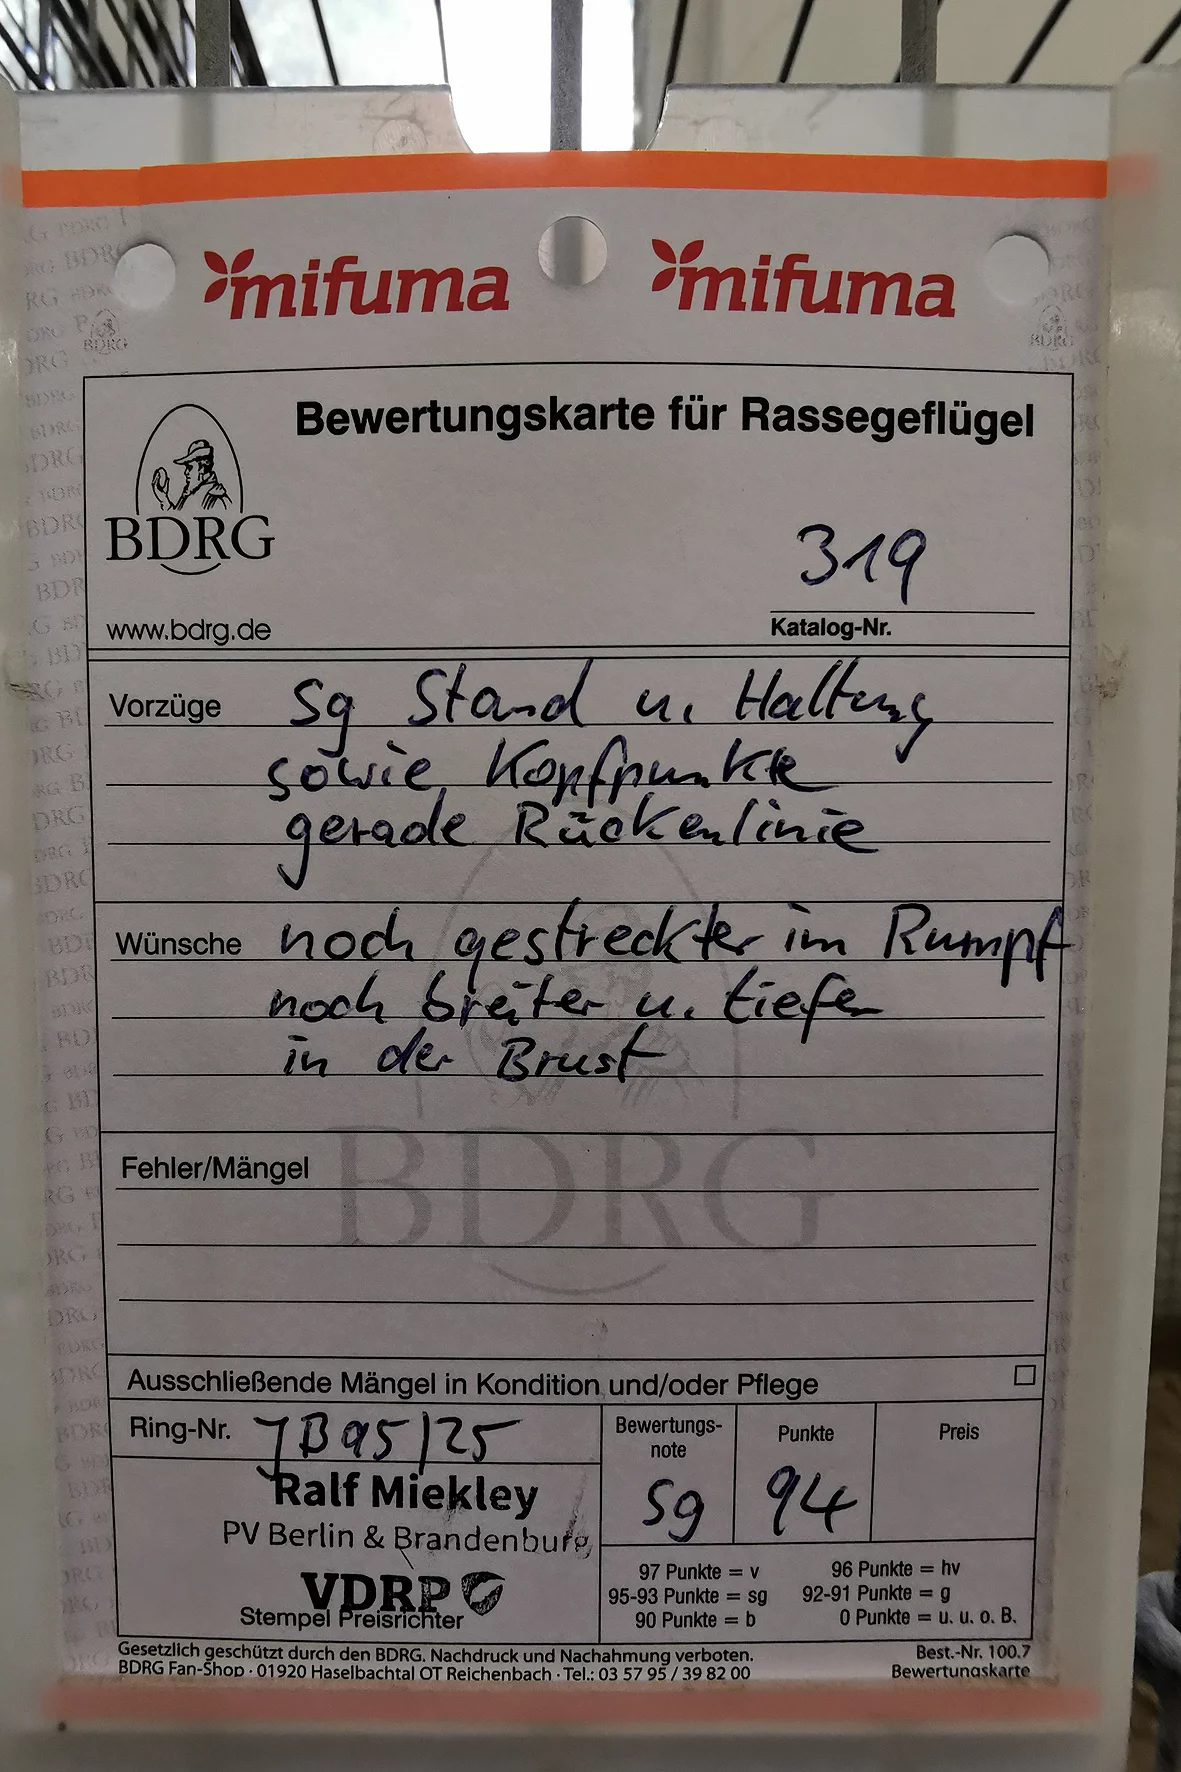 mifuma mifuma
Bewertungskarte für Rassegeflügel
BDRG
www.bdrg.de
319
Katalog-Nr.
Vorzüge sg Stand u. Haltung
sowie Kopfpunkte
gerade Rückenlinie
Wünsche noch gestreckter im Rumpf
noch breiter u. tiefer
in der Brust
BDRG
Fehler/Mängel
Ausschließende Mängel in Kondition und/oder Pflege
Ring-Nr. JB95/25
Bewertungs-
note
Punkte
Preis
sg 94
Ralf Miekley
PV Berlin & Brandenburg
VDRP
Stempel Preisrichter
97 Punkte = v 96 Punkte = hv
95-93 Punkte = sg 92-91 Punkte = g
90 Punkte = b 0 Punkte = u. u. o. B.
Gesetzlich geschützt durch den BDRG. Nachdruck und Nachahmung verboten. Best.-Nr. 100.7
BDRG Fan-Shop · 01920 Haselbachtal OT Reichenbach · Tel.: 03 57 95 / 39 82 00 Bewertungskarte